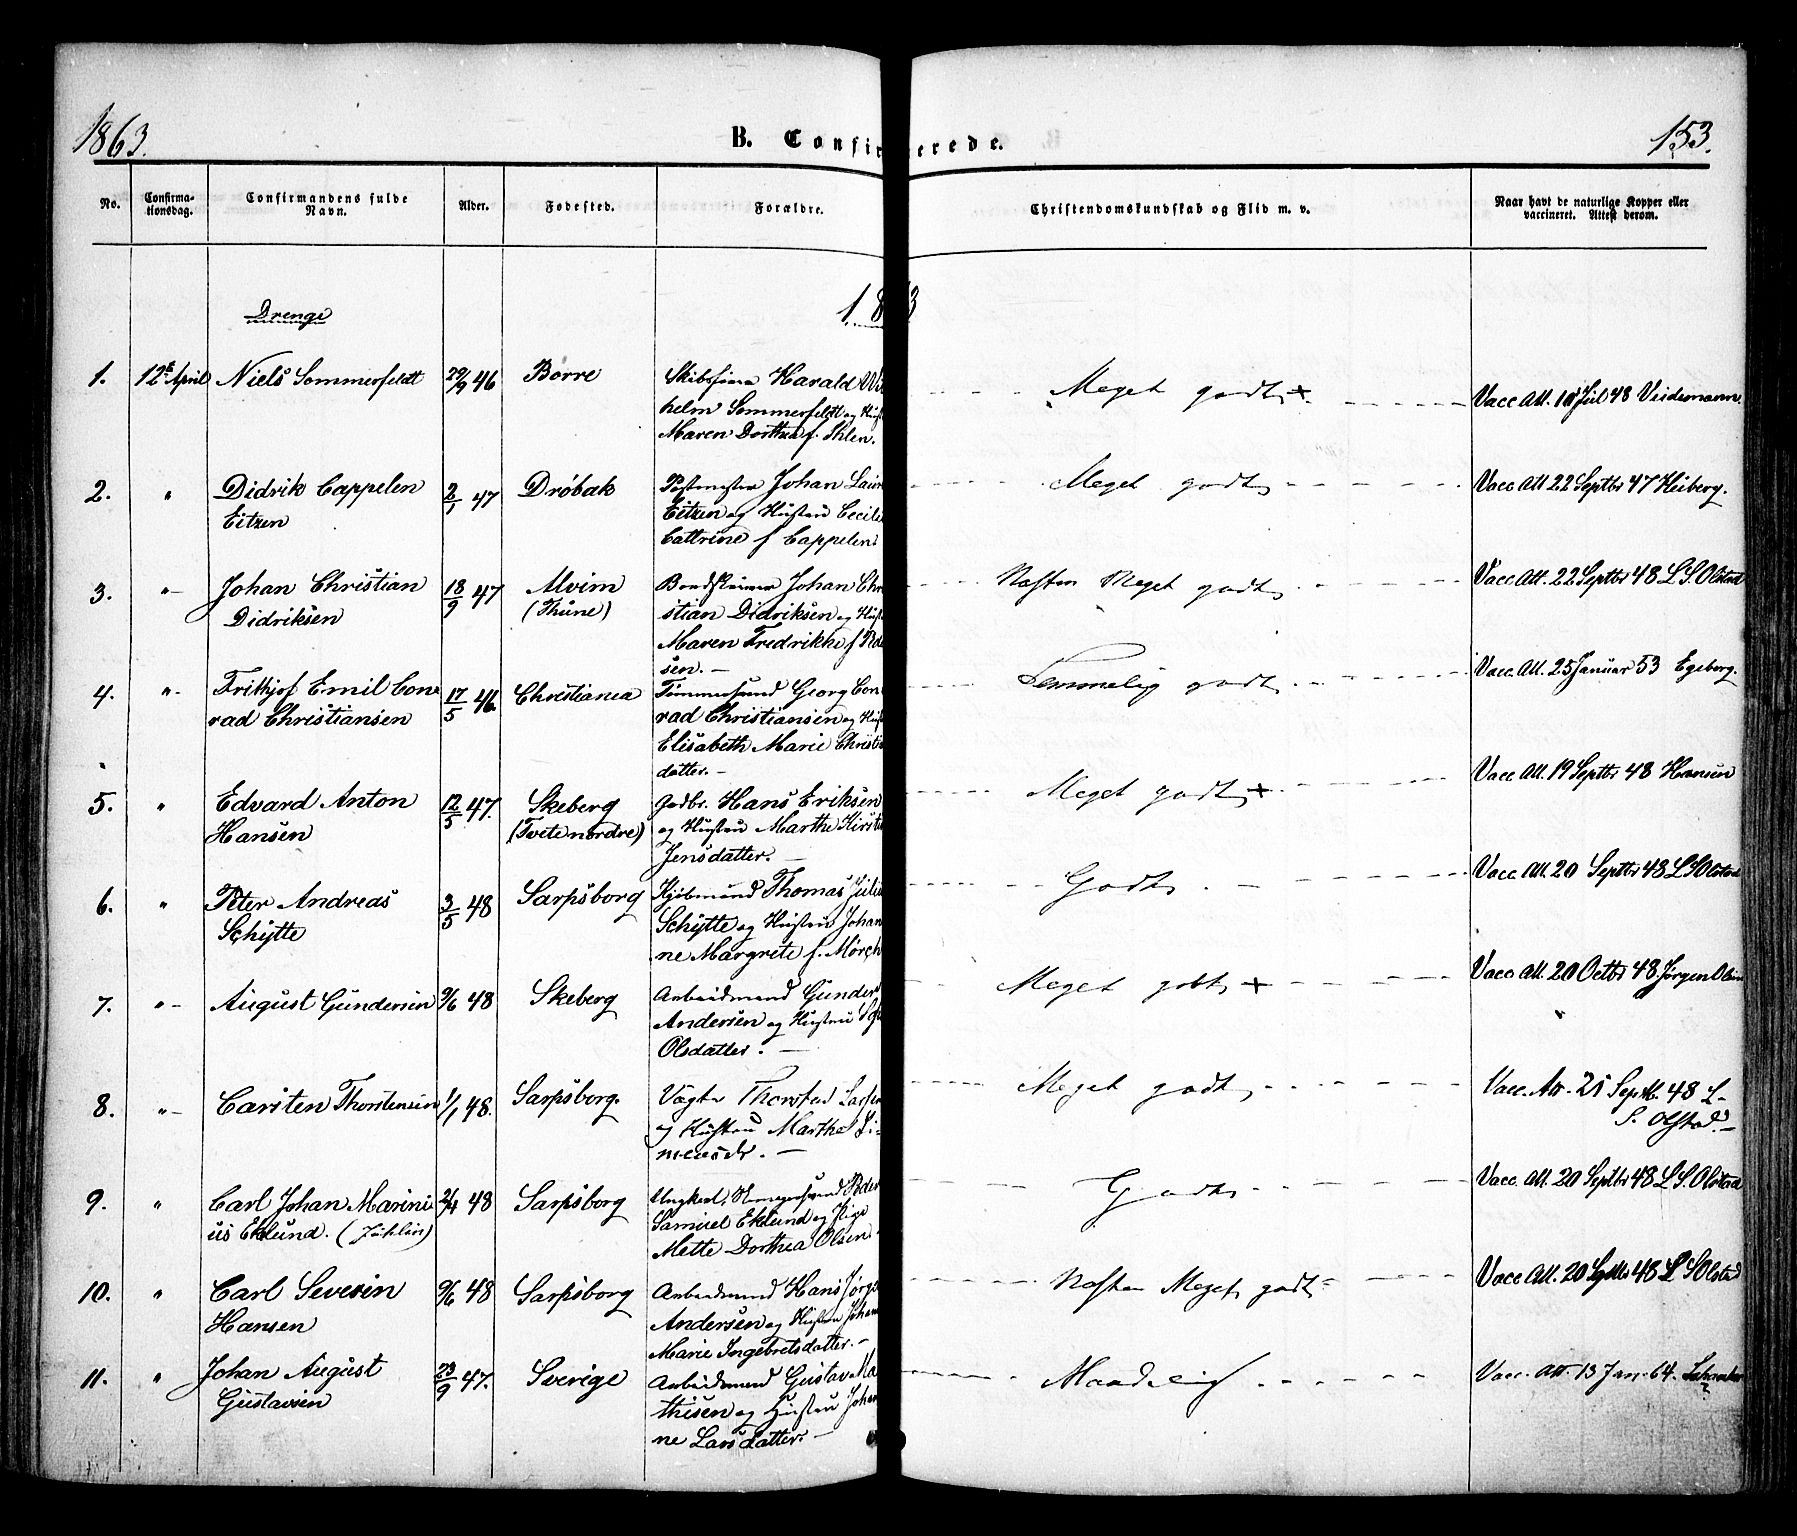 1863.
B. Confirmerede.
153.
No.
Confirma-
tionsdag.
Confirmandens fulde
Navn.
Alder.
Fødested.
Forældre.
Christendomskundskab og Flid m. v.
Naar havt de naturlige Kopper eller
vaccineret. Attest derom.
Drenge
1863
1. 12te April Niels Sommerfeldt 29/9 46 Borre Harald
helm Sommerfeldt og
Maren Dorthea f. Ihlen.
Meget godt + Vacc Att. Jul 48 Veidemann.
2. " Didrik Cappelen 2/1 47 Drøbak Postmester Johan
Eitzen Eitzen og Hustru
Cattrine f Cappelen.
Meget godt Vacc Att 22 Septbr 47 Heiberg.
3. "- Johan Christian 18/9 47 Alvim Johan Chri
Didriksen (Thune) stian Didriksen og
Maren Fredrikke f
sen. -
Næsten Meget godt Vacc Att. 22 Septbr 48 L S Olstad
4. "- Frithjof Emil Con 17/5 46. Christiania Tømmermand Georg Con
rad Christiansen rad Christiansen og
Elisabeth Marie
datter. -
Temmelig godt Vacc Att. 25 Januar 53 Egeberg.
5. " Edvard Anton 12/5 47. Skeberg Gdbr. Hans Eriksen
Hansen (Tvete nordre) og Hustru Marthe
Jensdatter. -
Meget godt + Vacc Att. 19 Septbr 48 Hansen
6. " Peter Andreas 3/5 48 Sarpsborg Kjøbmand Thomas
Schytte Schytte og Hustru Johan
ne Margrete f. Mørch
Godt Vacc Att. 20 Septbr 48 L S Olstad
7. "- August Gundersen 48 Skeberg Arbeidsmand Gunder
Andersen og Hustru
Olsdatter. -
Meget godt + Vacc Att. 20 Octbr 48 Jørgen
8. "- Carsten Thorstensen 1/1 48. Sarpsborg. Thorsten
og Hustru Marthe Si-
-
Meget godt Vacc. Att. 21 Septbr. 48 L-
S. Olstad. -
9. " Carl Johan Marini 48 Sarpsborg Ungkarl
us Eklund. Samuel Eklund og Pige
Mette Dorthea Olsen -
Godt Vacc Att 20 Septbr 48 L S Olstad
10. " Carl Severin 48 Sarpsborg Arbeidsmand Hans
Hansen Andersen og Hustru
Marie Ingebretsdatter. -
Næsten Meget godt Vacc Att. 20 Septbr 48 L S Olstad
11. " Johan August 23/9 47. Sverige Arbeidsmand Gustav Ma
Gustavsen thisen og Hustru Johan
ne Larsdatter. -
Maadelig Vacc. Att. 13 Jan. 64.